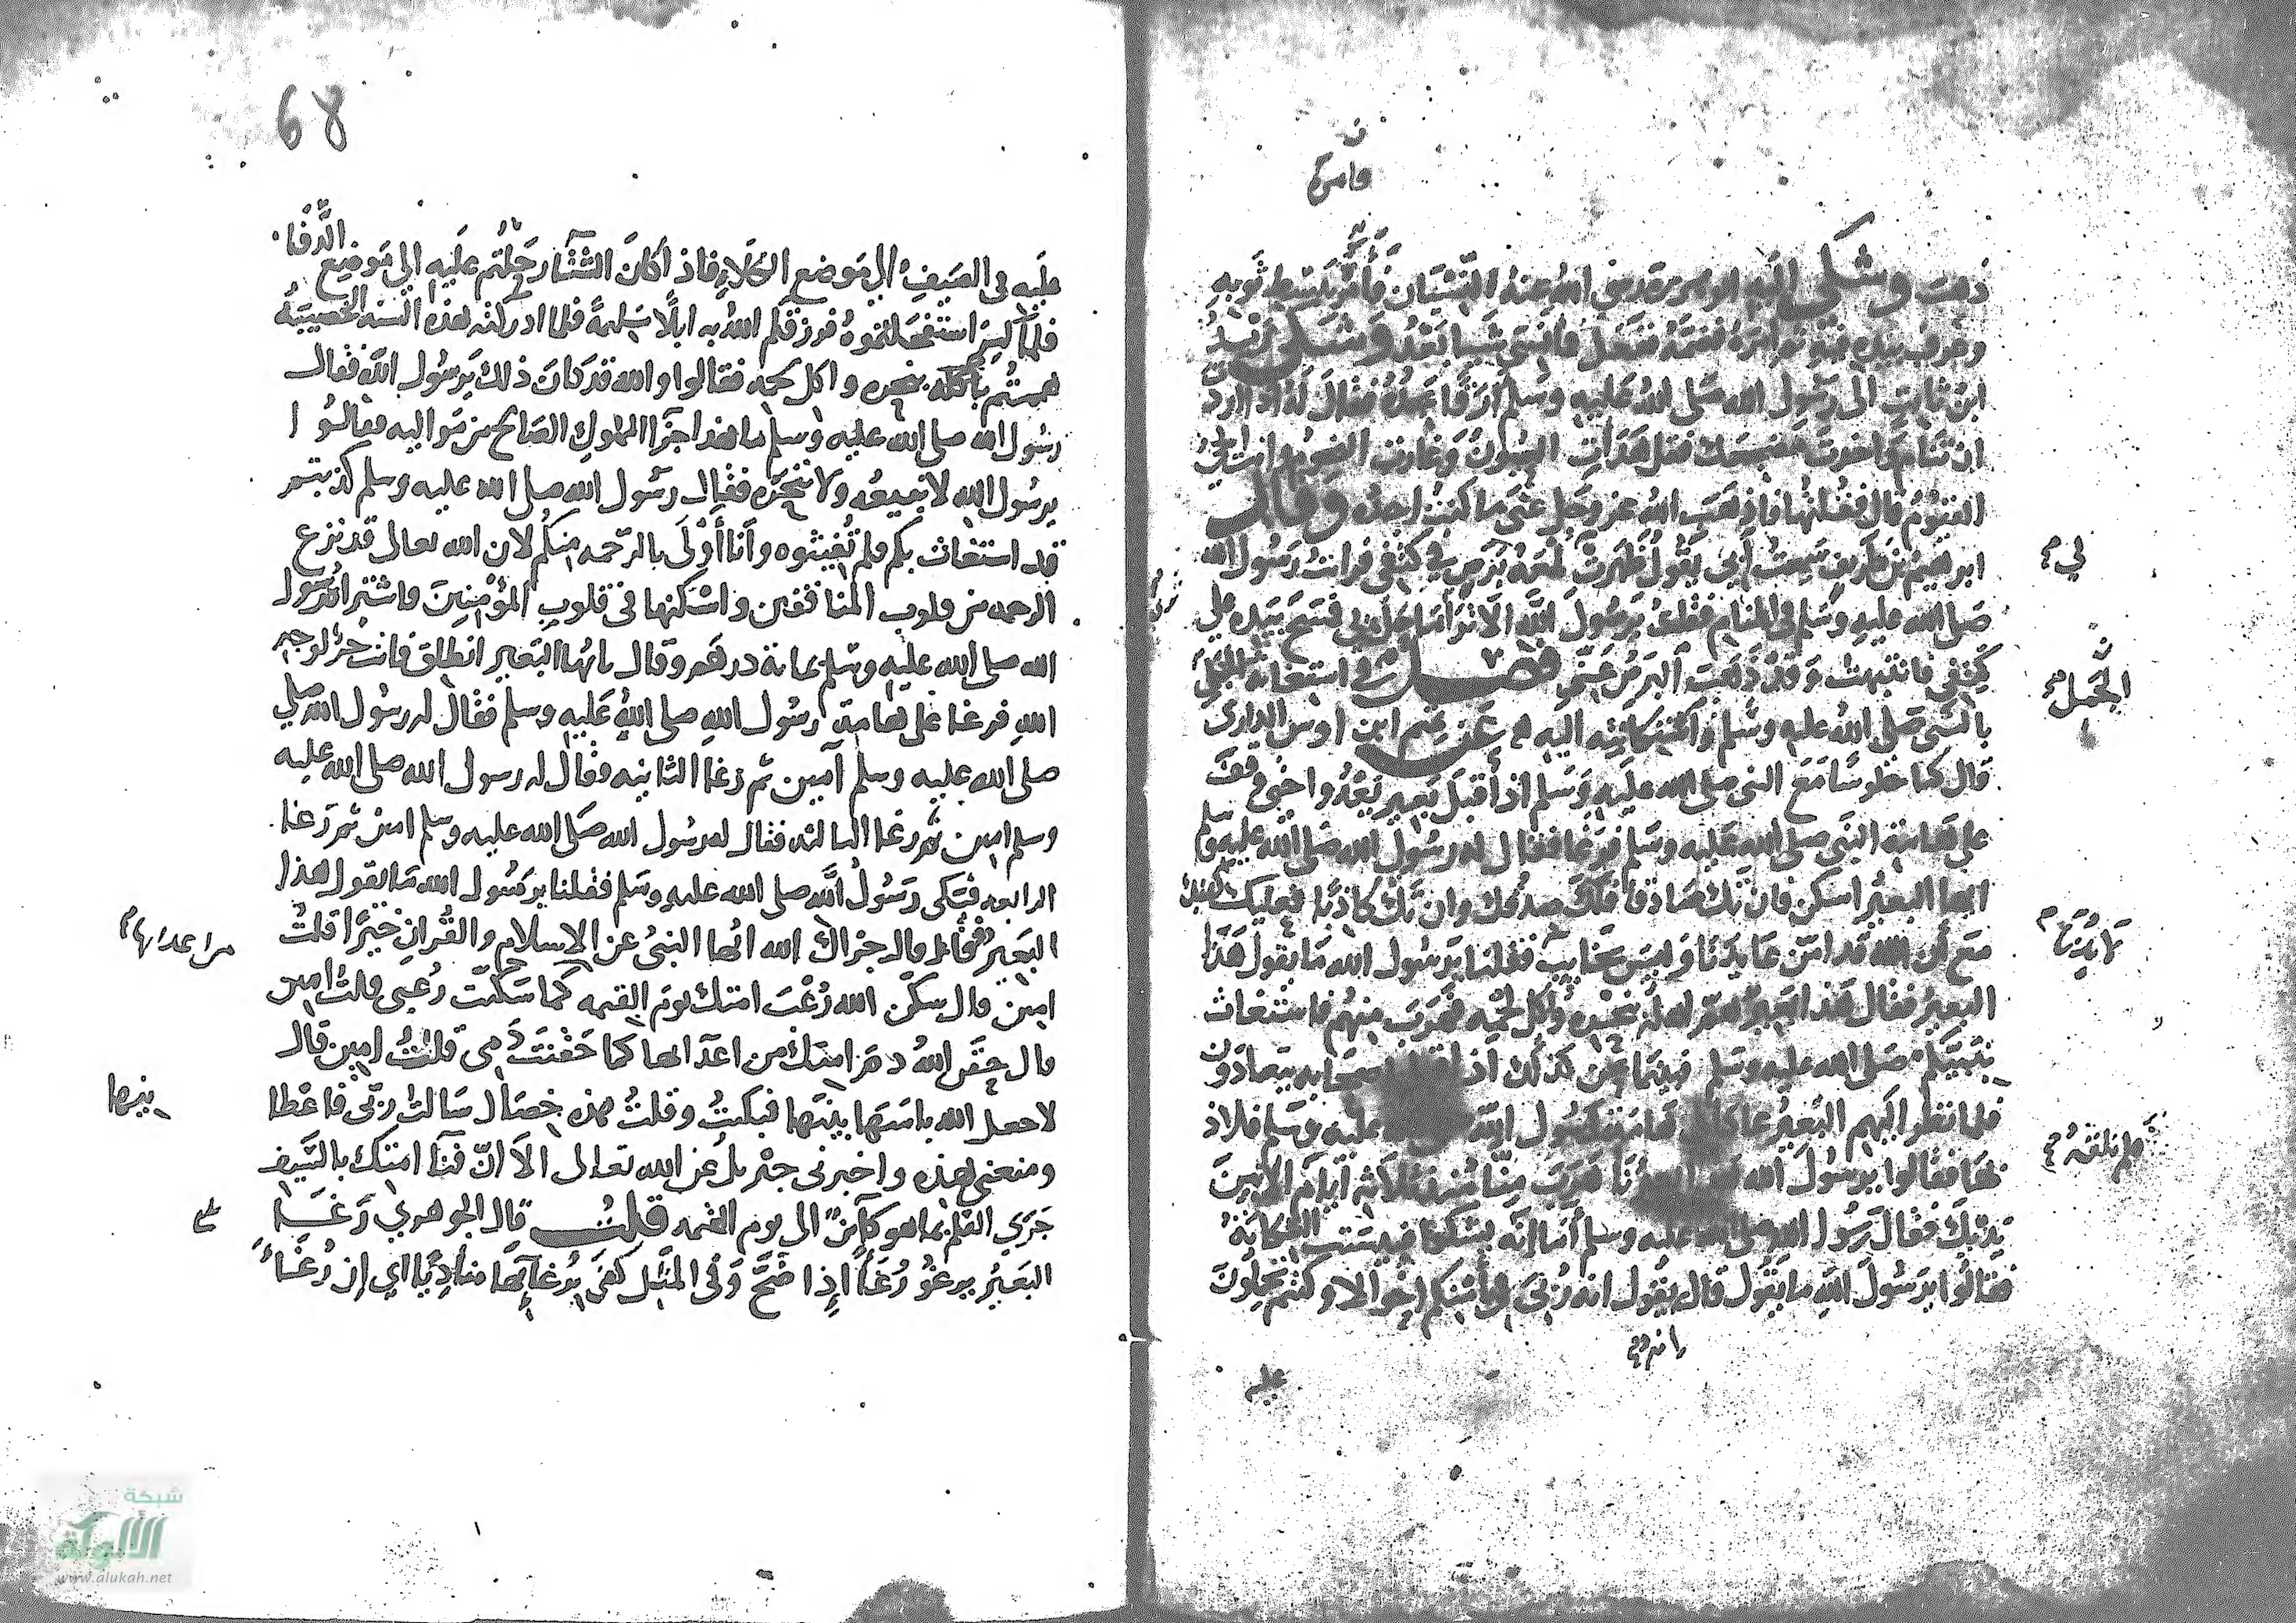 ف
فامره
ذهبت وشكى اليه ابو هريرة رضي الله عنه النسيان فأمره يبسط ثوبه
وغرف بيده فيه ثم امره فضمه ففعل فما نسي شيا بعد وشكى زيد
ابن ثابت الى رسول الله صلى الله عليه وسلم ارقا يجده فقال له اذا اردت
ان تنام فقل هدات العيون وغارت النجوم وانت الحي
القيوم قال فقلتها فاذهب الله عز وجل عني ما كنت اجده وقال
ابرهيم بن طريف سمعت أبي يقول ظهرت لمعة برص في كتفي فرايت رسول الله
صلى الله عليه وسلم في المنام فقلت يرسول الله الا ترا ما حل بي فمسح بيده على
كتفي فانتبهت وقد ذهب البرص عني فصل في استغاثة الجمل
بالنبي صلى الله عليه وسلم وشكايته اليه عن تميم ابن اوس الداري
قال كنا جلوسا مع النبي صلى الله عليه وسلم اذ أقبل بعير يعدوا حتى وقف
على هامة النبي صلى الله عليه وسلم فرغا فقال له رسول الله صلى الله عليه وسلم
ايها البعير اسكن فان تك صادقا فلك صدقك وان تك كاذبا فعليك كذبك
مع أن الله قد امن عايذنا وليس بخايب فقلنا يرسول الله ما يقول هذا
البعير فقال هذا البعير هم اهله بنحره وأكل لحمه فهرب منهم فاستغاث
بنبيكم صلى الله عليه وسلم فبينما نحن كذلك اذ اقبل اصحابه يتعادون
فلما نظر اليهم البعير عاد الى هامة رسول الله صلى الله عليه وسلم فلاذ
بها فقالوا يرسول الله هذا بعيرنا هرب منا منذ ثلاثه ايام فلم نلقه الا بين
يديك فقال رسول الله صلى الله عليه وسلم أما انه يشكوا فبيست الشكاية
فقالوا يرسول الله ما يقول قال يقول انه ربي في أمنكم احوالا وكنتم تحملون
عليه
لي
الجمل
عايذنا
فلم نلقه
68
عليه في الصيف الى موضع الكلاء فاذا كان الشتاء رحلتم عليه الى موضع الدفا
فلما كبر استفحلتموه فرزقكم الله به ابلا سليمة فلما ادركته هذه السنه الخصيبة
هممتم بنحره واكل لحمه فقالوا والله قد كان ذلك يرسول الله فقال
رسول الله صلى الله عليه وسلم ما هذا جزا المملوك الصالح من مواليه فقالوا
يرسول الله لا نبيعه ولا ننحره فقال رسول الله صلى الله عليه وسلم كذبتم
قد استغاث بكم فلم تغيثوه وأنا أولى بالرحمه منكم لان الله تعالى قد نزع
الرحمه من قلوب المنافقين واسكنها في قلوب المؤمنين فاشتراه رسول
الله صلى الله عليه وسلم بماية درهم وقال يا ايها البعير انطلق فانت حر لوجه
الله فرغا على هامة رسول الله صلى الله عليه وسلم فقال له رسول الله صلى
صلى الله عليه وسلم آمين ثم رغا الثانيه فقال له رسول الله صلى الله عليه
وسلم امين ثم رغا الثالثه فقال له رسول الله صلى الله عليه وسلم امين ثم رغا
الرابعه فبكى رسول الله صلى الله عليه وسلم فقلنا يرسول الله ما يقول هذا
البعير فقال قال جزاك الله ايها النبي عن الاسلام والقران خيرا قلت
امين قال سكن الله رعب امتك يوم القيمه كما سكنت رعبي قلت امين
قال حقن الله دم امتك من اعدائها كما حقنت دمي قلت امين قال
لا جعل الله باسها بينها فبكيت وقلت هذه خصال سالت ربي فاعطا
ومنعني هذه واخبرني جبريل عن الله تعالى الا ان فنا امتك بالسيف
جرى القلم بما هو كآين الى يوم القيمه قلت قال الجوهري رغا
البعير يرغو رغاً اذا ضج وفي المثل كفى برغايها مناديا اي ان رغاء
من اعدائها
بينها
شبكة
الألوكة
www.alukah.net